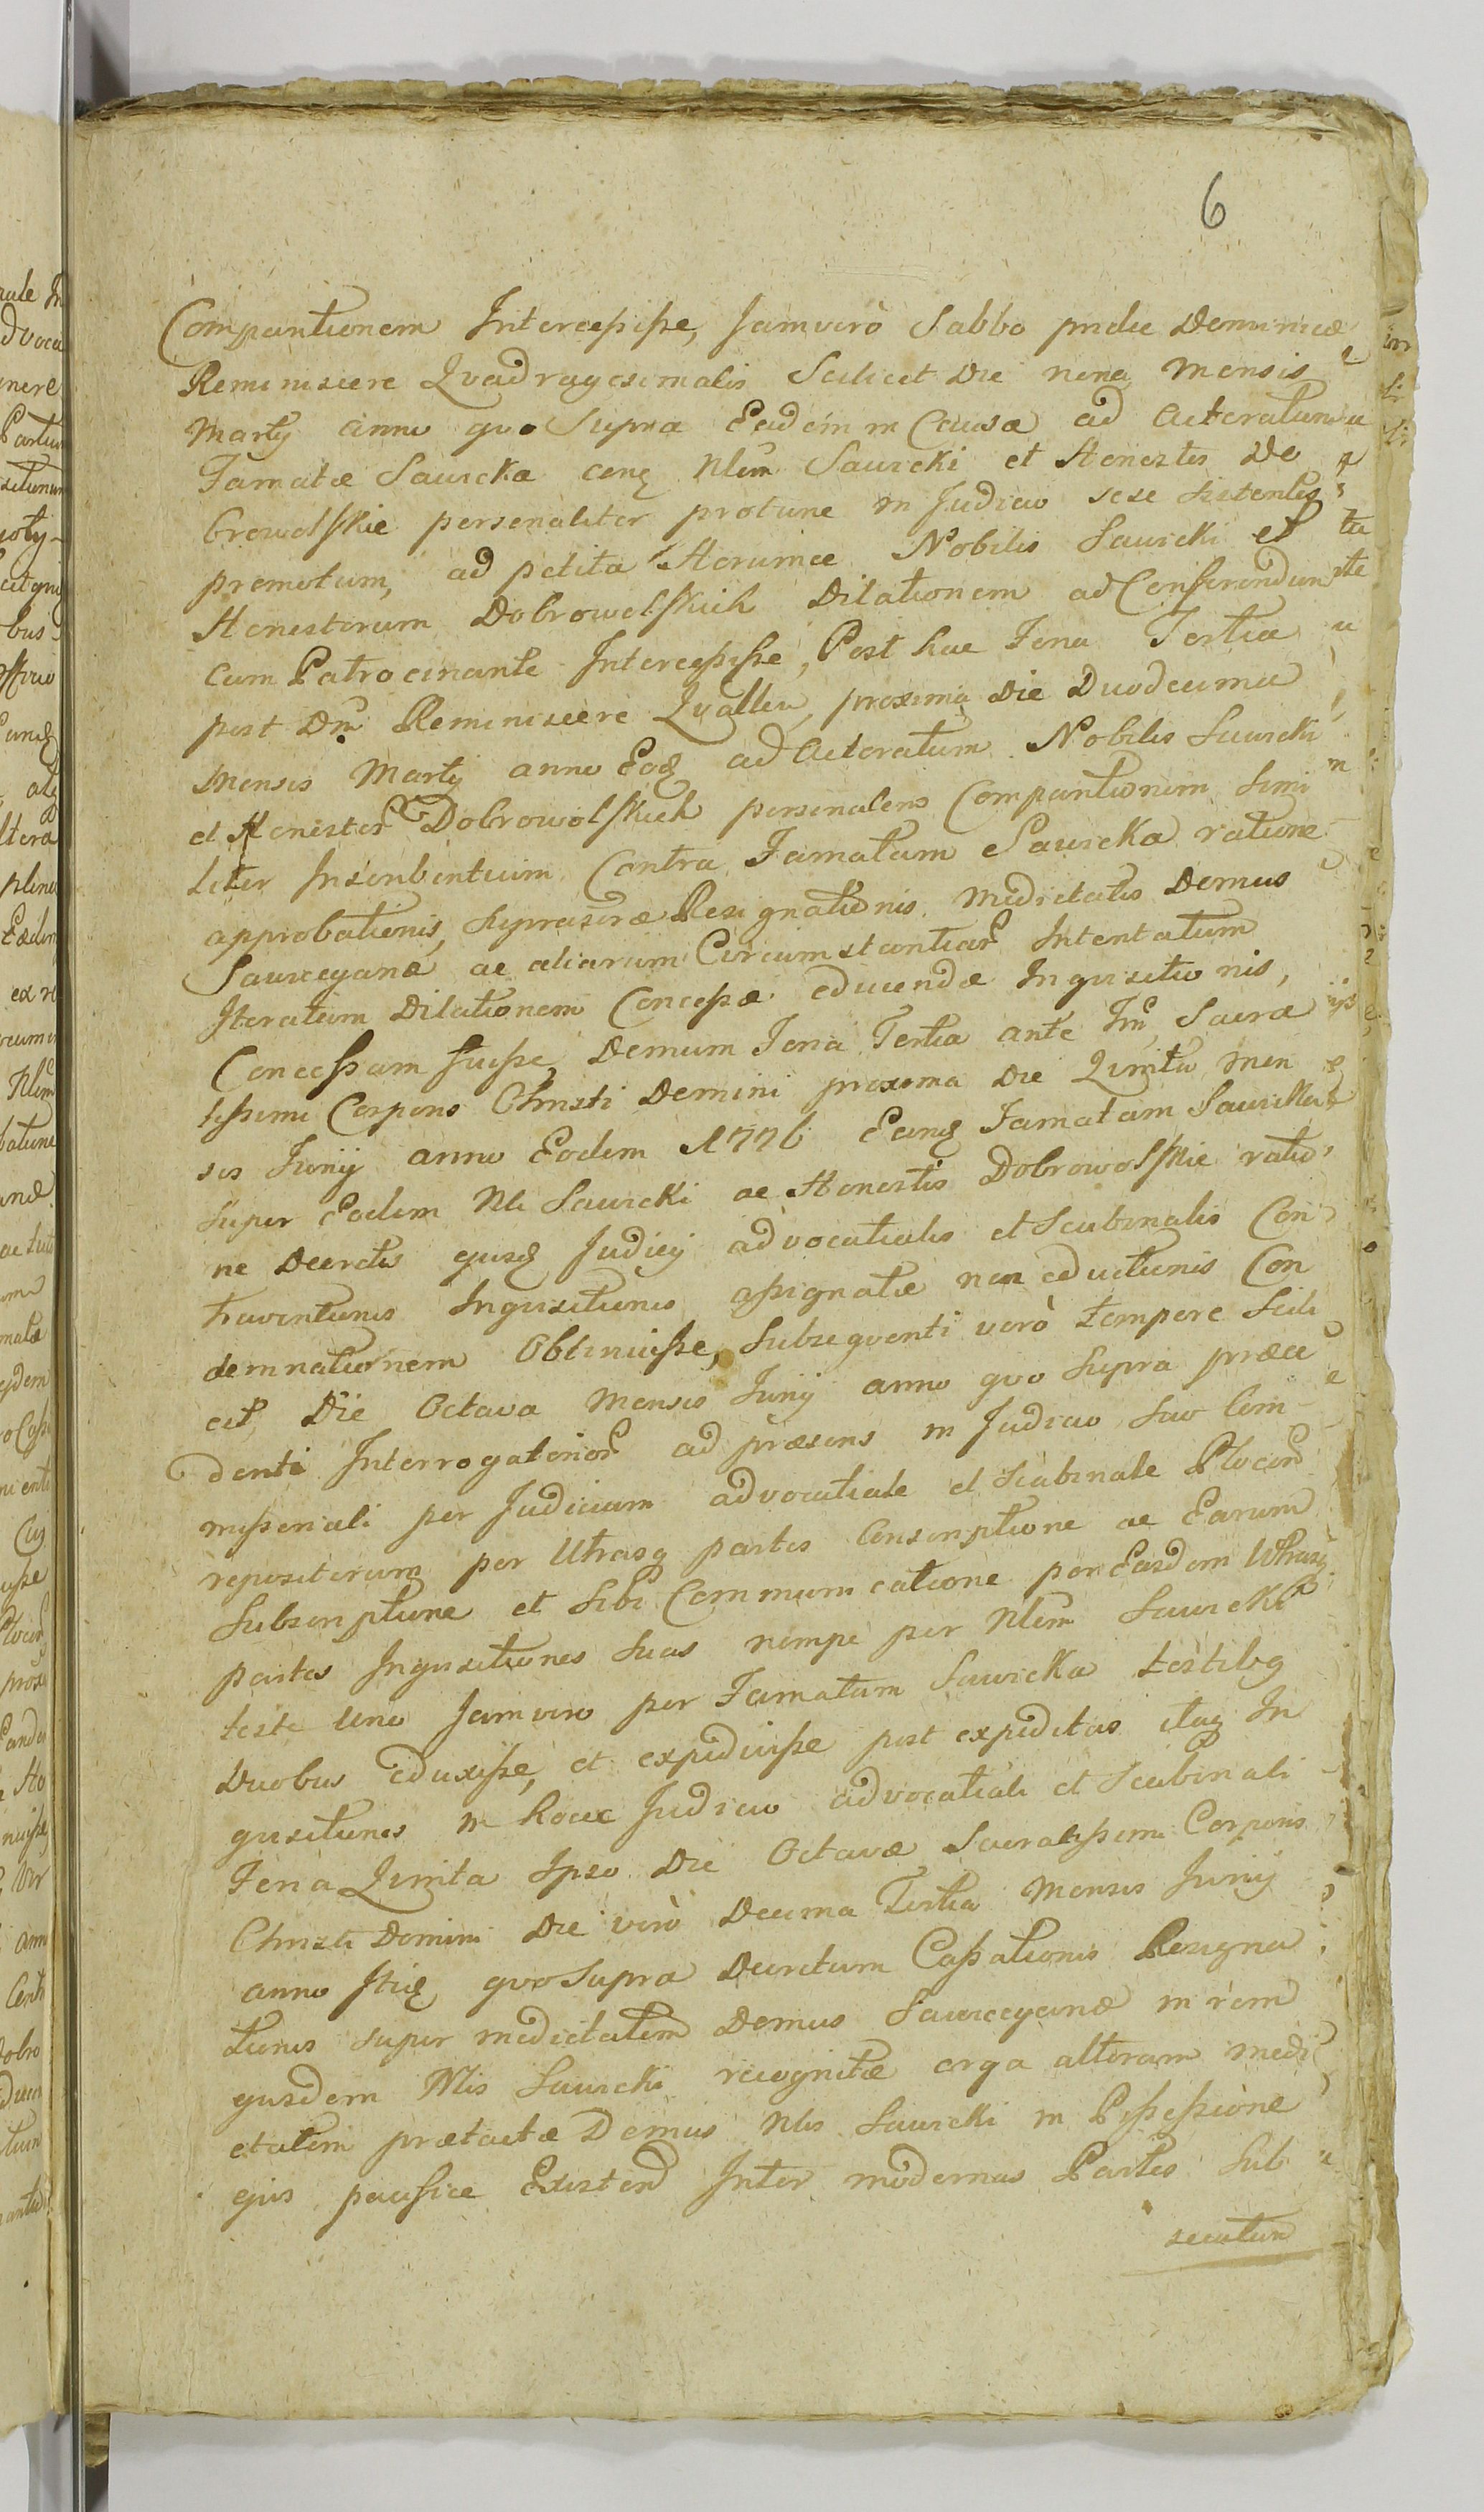 6
Comparitionem Intercepisse, Jamvero Sabbo pridie Dominicae
Reminiscere Qvadragesimalis Scilicet Die nona Mensis
Martij anno quo Supra Eadem in Causa ad Actoratum
Famatae Sawicka conq Nlem Sawicki et Honestos Do
browolskie personaliter protunc in Judicio sese sistentes
promotum, ad petita Horumce Nobilis Sawicki et
Honestorum Dobrowolskich Dilationem ad Conferendum
cum Patrocinante Intercepisse, Post hac Feria Tertia
post Dnm Reminiscere Qvallem, proxima Die Duodecima
Mensis Martij anno Eoq ad Actoratum Nobilis Sawicki
et Honestor Dobrowolskich personalem Comparitionem Simi
liter Inscribentium Contra Famatam Sawicka ratione
approbationis, Suprascrae Resignationis Medietatis Domus
Sawiceyanae ac aliarum Circumstantiar Intentatum
Iteratam Dilationem Concessae educendae Inquisitionis,
Concessam fuisse, Demum Feria Tertia ante Fm Sacra
tissimi Corporis Christi Domini proxima Die Qvinta Men
sis Junij anno Eodem 1776 Eanq Famatam Sawicka
super Eodem Nli Sawicki ac Honestis Dobrowolskie ratio
ne Decretis ejusq Judicij advocatialis et Scabinalis Con
traventionis Inquisitionis assignatae non eductionis Con
demnationem Obtinuisse, Subsequenti vero tempore Scili
cet Die Octava Mensis Junij anno quo Supra praece
denti Interrogatorior ad praesens in Judicio Suo Com
missoriali per Judicium advocatiale et Scabinale Plocen
repositorum per Utrasq partes Conscriptione ac Earum
Subscriptione et Sibi Communicatione per Easdem Utrasq
partes Inquisitiones Suas nempe per Nlem Sawicki
teste Uno Jamvero per Famatam Sawicka testibq
Duobus eduxisse, et expedivisse post expeditas itaq In
quisitiones in hocce Judicio advocatiali et Scabinali
Feria Qvinta Ipso Die Octavae Sacratissimi Corporis
Christi Domini Die vero Decima Tertia Mensis Junij
anno Itiq quo Supra Decretum Cassationis Resigna
tionis super medietatem Domus Sawiceyanae in rem
ejusdem Nlis Sawicki recognitae erga alteram medi
etatem praetactae Domus Nlis Sawicki in Possessione
ejus pacifice Existen Inter modernas Partes Sub
secutum